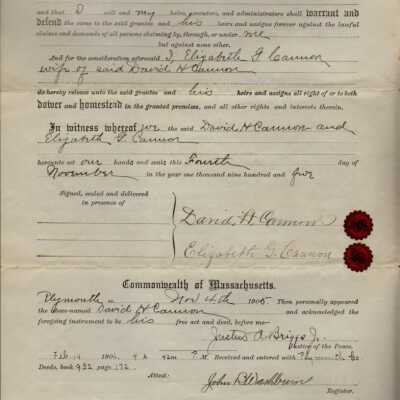 and that I will and my heirs, executors, and administrators shall warrant and
defend the same to the said grantee and his heirs and assigns forever against the lawful
claims and demands of all persons claiming by, through, or under me
but against none other.
And for the consideration aforesaid I, Elizabeth G. Cannon
wife of said David H Cannon
do hereby release unto the said grantee and his heirs and assigns all right of or to both
dower and homestead in the granted premises, and all other rights and interests therein.
In witness whereof we the said David H Cannon and
Elizabeth G. Cannon
hereunto set our hands and seals this Fourth day of
November in the year one thousand nine hundred and five
Signed, sealed and delivered
in presence of
David H Cannon
Elizabeth G. Cannon
Commonwealth of Massachusetts.
Plymouth ss Nov 4th 1905 Then personally appeared
the above-named David H Cannon and acknowledged the
foregoing instrument to be his free act and deed, before me—
Justus A Briggs Jr.
Justice of the Peace.
Feb 14 42m P.M. Received and entered with Plymouth Co.
Deeds, book 932 page 172.
Attest:
John B Washburn
Register.